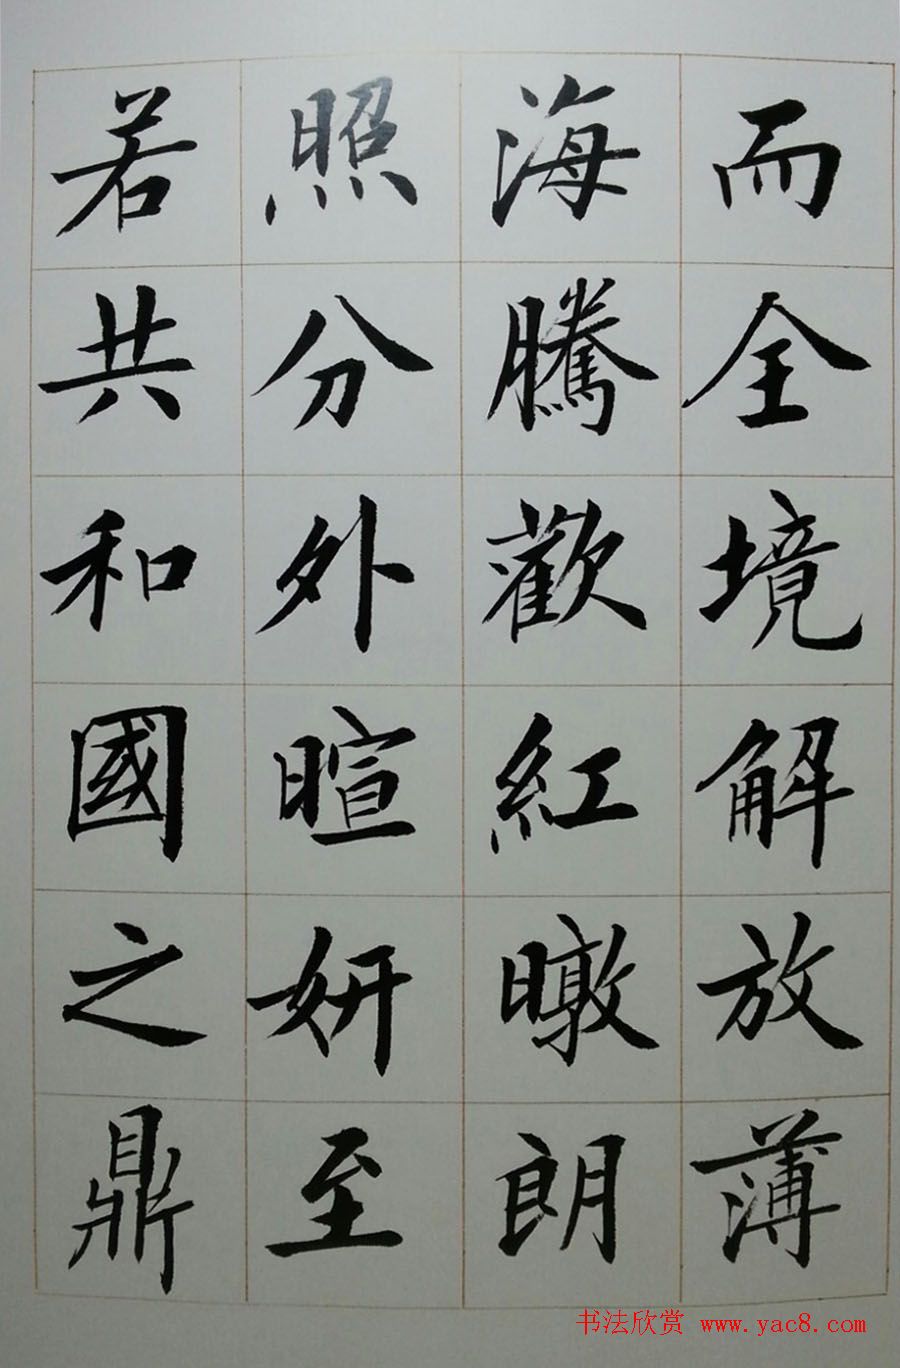 而全境解放薄
海騰歡紅暾朗
照分外暄妍至
若共和國之鼎
书法欣赏 www.yac8.com